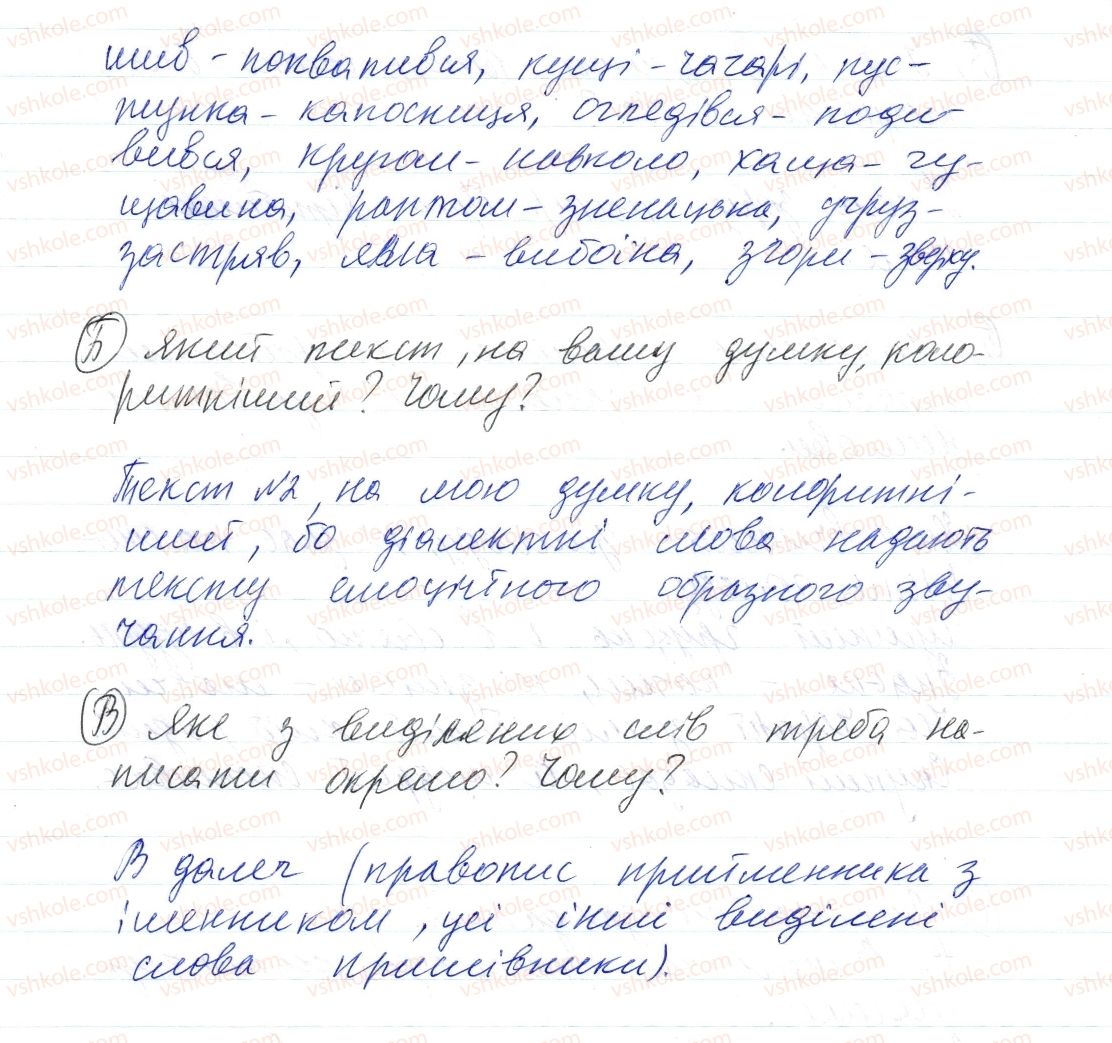 шив - похватився, кущі - чагарі, пус-
тунка - капосниця, огледівся - поди
вився, кругом - навколо, хаща - гу-
щавина, раптом - зненацька, угруз-
застряв, яма - вибоїна, згори - зверху.
Б Який текст, на вашу думку, коло-
ритніший? Чому?
Текст №2, на мою думку, колоритні-
ший, бо діалектні слова надають
тексту емоційного образного зву-
чання.
В Яке з виділених слів треба на-
писати окремо? Чому?
В далеч (правопис прийменника з
іменником, усі інші виділені
слова прислівники).